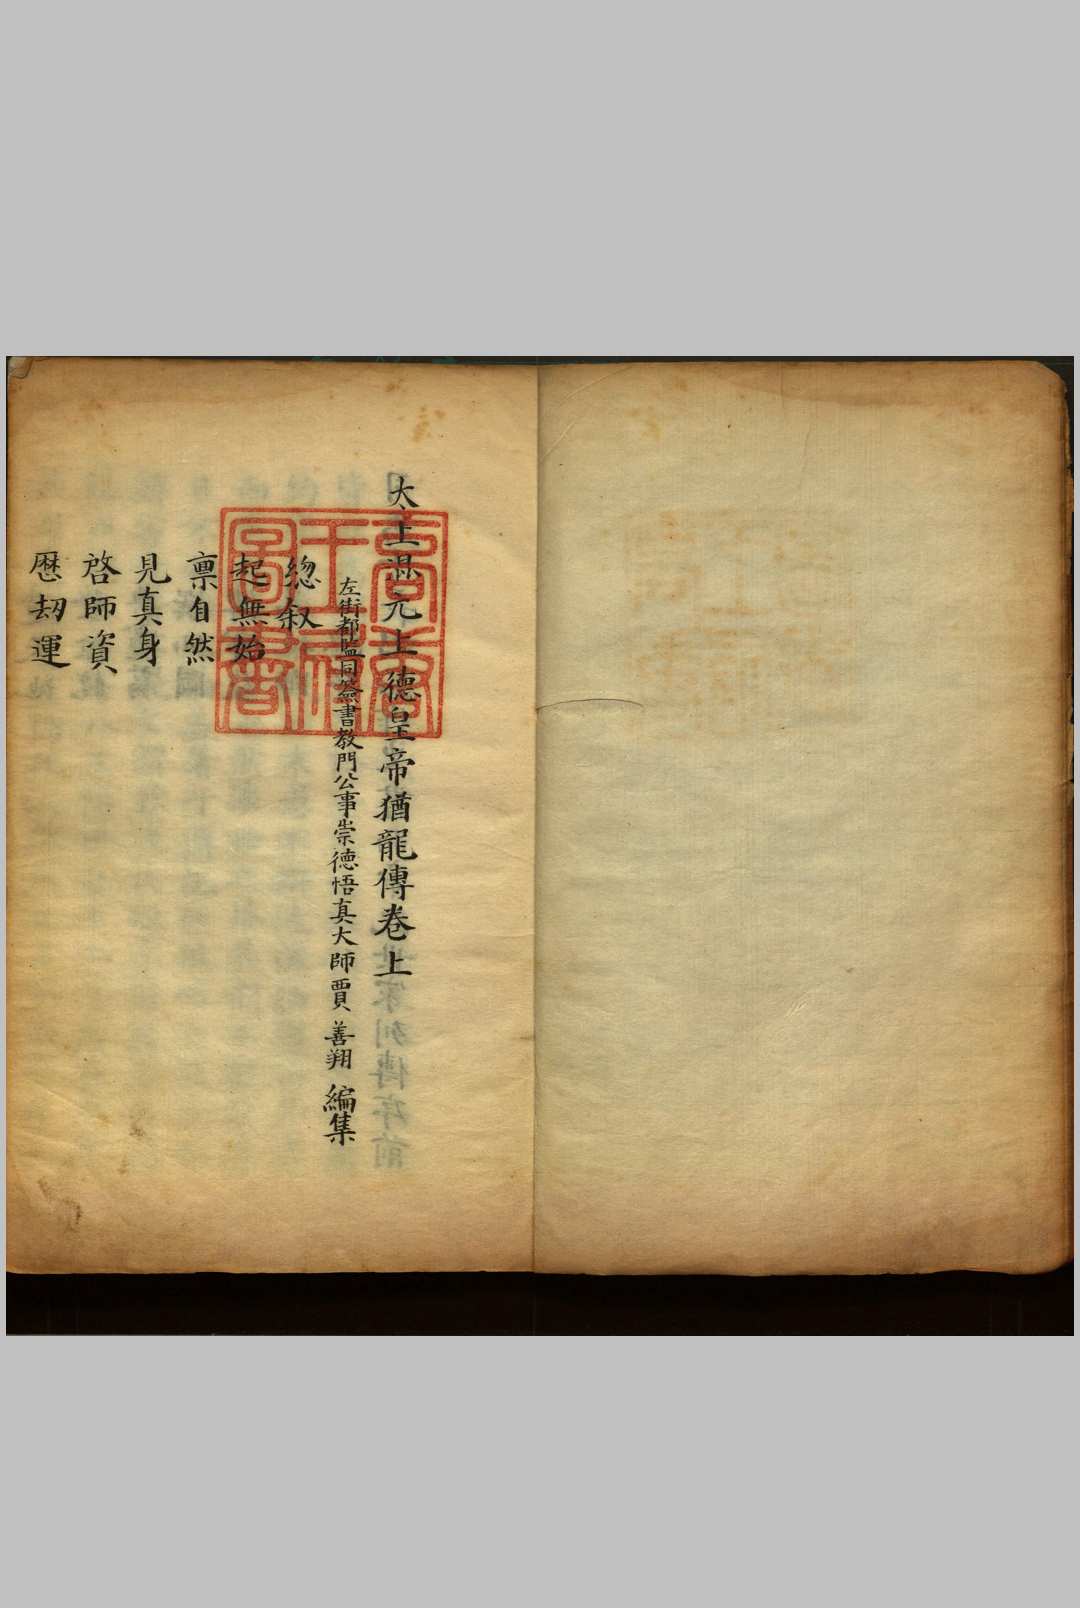 太上混元上德皇帝猶龍傳卷上
左街都監同簽書教門公事崇德悟真大師賈善翔編集
緫叙
起無始
禀自然
見真身
啓師資
暦刼運
高唐王府圖書